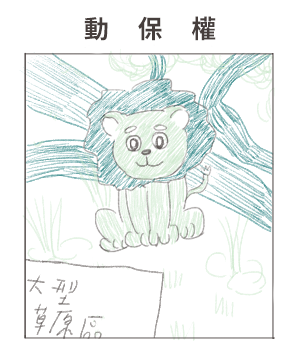 動保權
大型
草原區